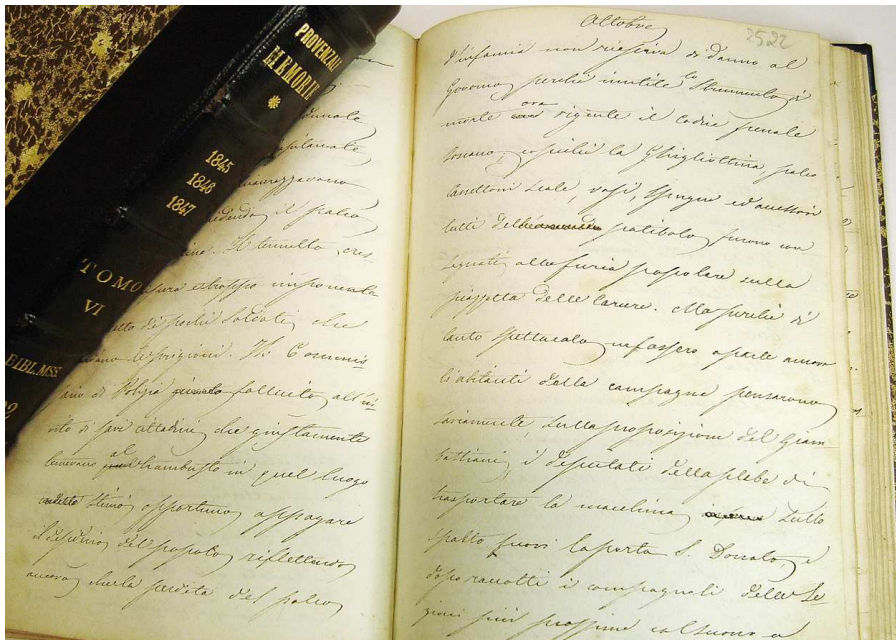 PROVENZALI
MEMORIE
1845
1846
1847
TOMO
VI
BIBL. MSS.
il palco
Il tumulto cres
troppo imponente
di pochi soldati, che
prigioni. Il Commis-
di Polizia sollecito all'in-
vito di savi cittadini, che giustamente
temevano al trambusto in quel luogo
stimò opportuno appagare
il desiderio del popolo, riflettendo
ancora, che la perdita del palco,
Ottobre
2522
d'infamia non riesciva di danno al
Governo perché inutile lo strumento di
morte ora vigente il codice penale
toscano, cosicché la Ghigliottina, palco
cassettoni scale, vasi, spugne ed accessori
tutti del patibolo, furono con
segnati alla furia popolare sulla
piazzetta delle Carceri. Ma perché di
tanto spettacolo ne fossero a parte ancora
li abitanti della campagna pensarono
saviamente, sulla proposizione del Giam
battiani, i deputati della plebe di
trasportare la macchina tutto
fuori la porta S. Donato, e
dopo raccolti i compagnoli delle Re
gioni più prossime col suono a